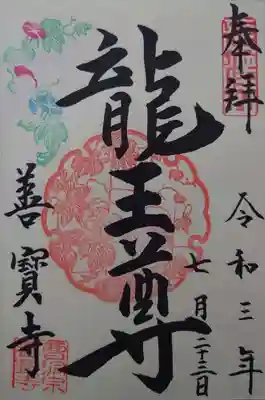 奉拝
令和三年
七月二十三日
龍王尊
善寳寺